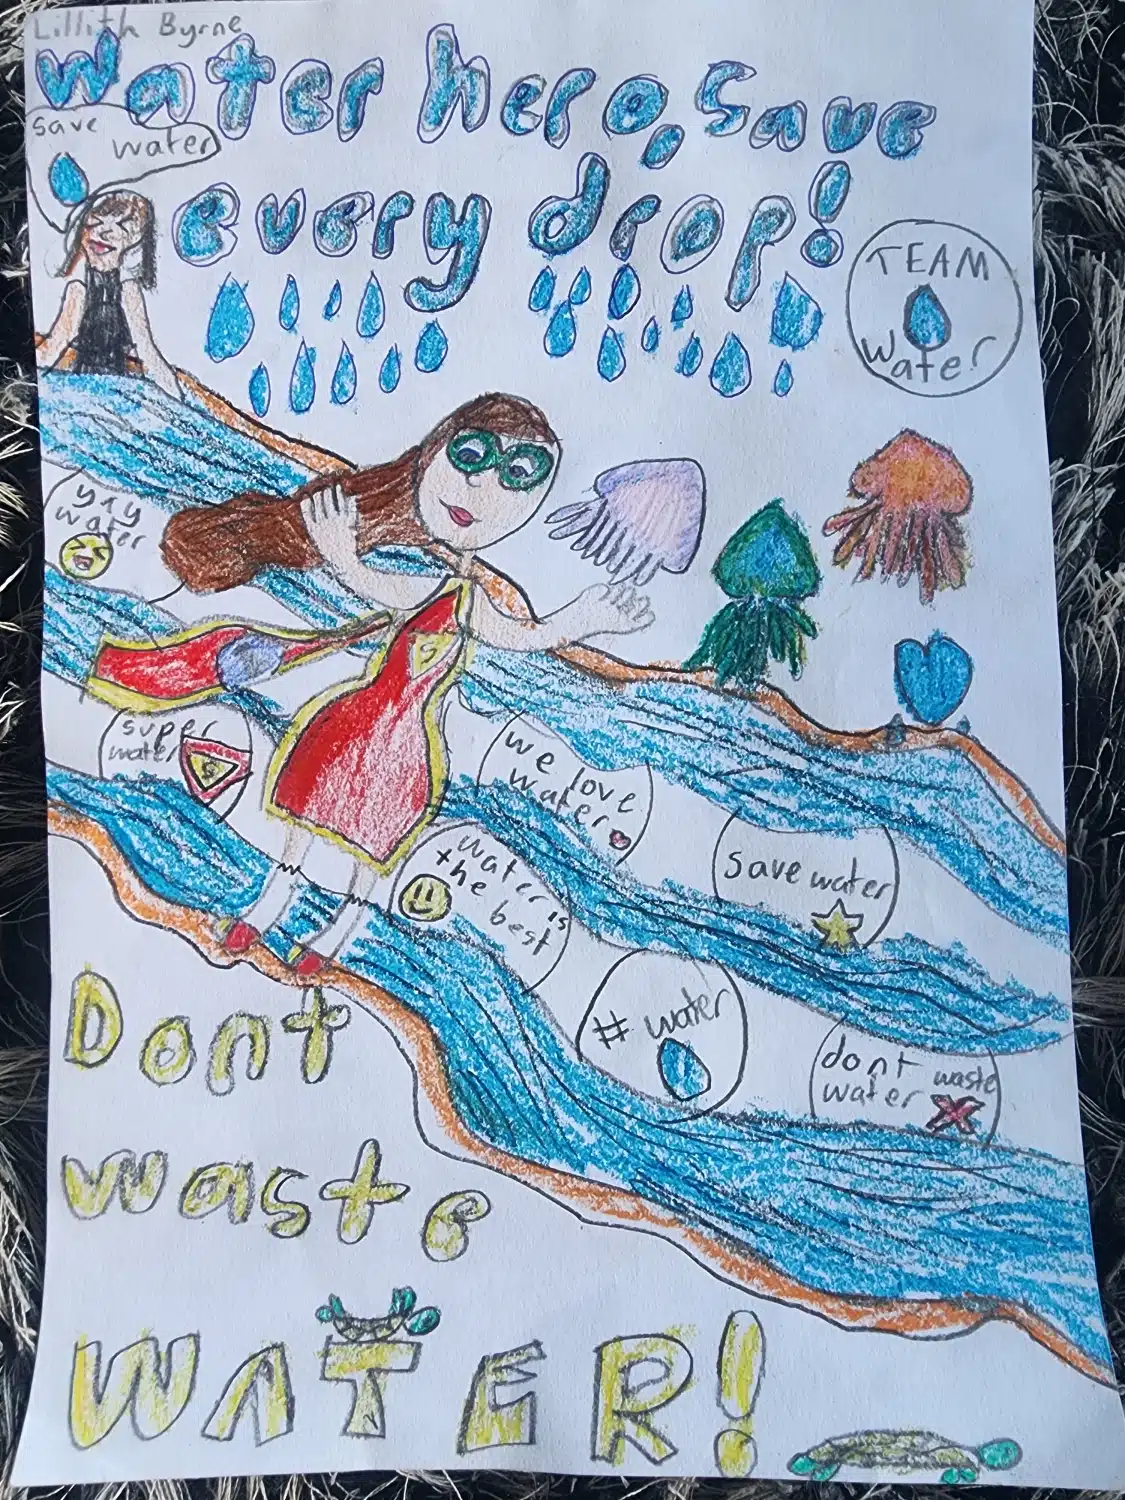 Lillith Byrne
Water hero, Save
every drop!
save
water
TEAM
Water
yay
water
S
super
water
S
we love
water
water is
the best
save water
# water
dont waste
water
Dont
waste
WATER!